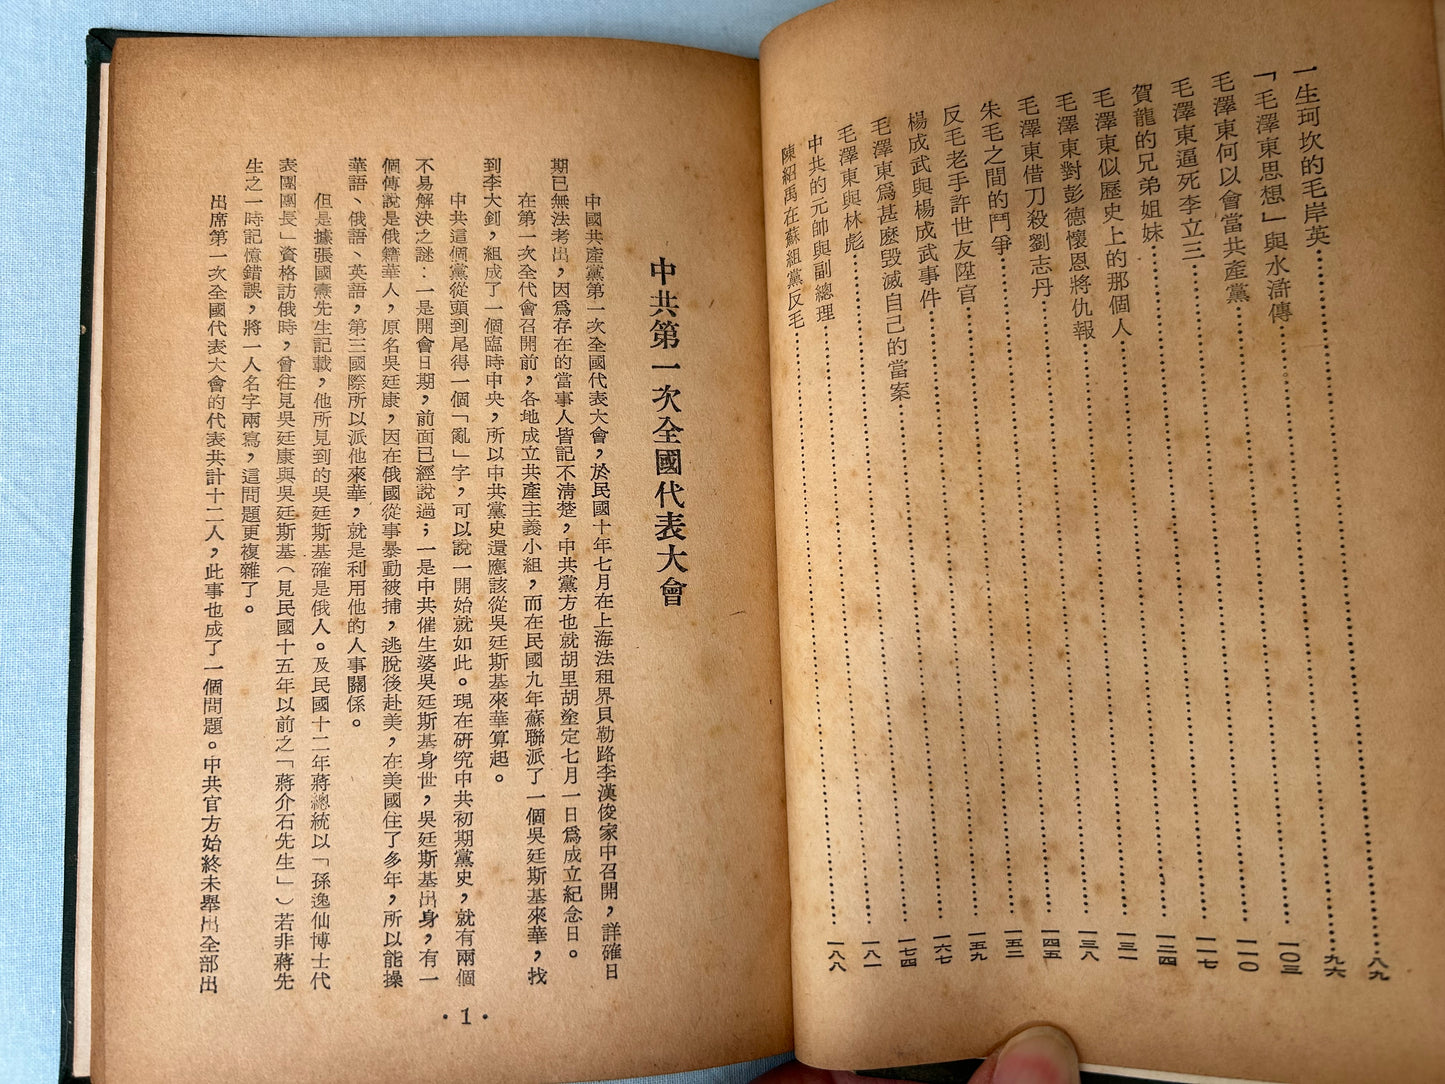 一生珂坎的毛岸英……八九
「毛澤東思想」與水滸傳……九六
毛澤東何以會當共產黨……一〇三
毛澤東逼死李立三……一一〇
賀龍的兄弟姐妹……一一七
毛澤東似歷史上的那個人……一二四
毛澤東對彭德懷恩將仇報……一三一
毛澤東借刀殺劉志丹……一三八
朱毛之間的鬥爭……一四五
反毛老手許世友陞官……一五二
楊成武與楊成武事件……一五九
毛澤東爲甚麽毀滅自己的當案……一六七
毛澤東與林彪……一七四
中共的元帥與副總理……一八一
陳紹禹在蘇組黨反毛……一八八
中共第一次全國代表大會
中國共產黨第一次全國代表大會，於民國十年七月在上海法租界貝勒路李漢俊家中召開，詳確日
期已無法考出，因爲存在的當事人皆記不清楚，中共黨方也就胡里胡塗定七月一日爲成立紀念日。
在第一次全代會召開前，各地成立共產主義小組，而在民國九年蘇聯派了一個吳廷斯基來華，找
到李大釗，組成了一個臨時中央，所以中共黨史還應該從吳廷斯基來華算起。
中共這個黨從頭到尾得一個「亂」字，可以說一開始就如此。現在研究中共初期黨史，就有兩個
不易解決之謎：一是開會日期，前面已經說過；一是中共催生婆吳廷斯基身世，吳廷斯基出身，有一
個傳說是俄籍華人，原名吳廷康，因在俄國從事暴動被捕，逃脫後赴美，在美國住了多年，所以能操
華語、俄語、英語，第三國際所以派他來華，就是利用他的人事關係。
但是據張國燾先生記載，他所見到的吳廷斯基確是俄人。及民國十二年蔣總統以「孫逸仙博士代
表團團長」資格訪俄時，曾往見吳廷康與吳廷斯基（見民國十五年以前之「蔣介石先生」）若非蔣先
生之一時記憶錯誤，將一人名字兩寫，這問題更複雜了。
出席第一次全國代表大會的代表共計十二人，此事也成了一個問題。中共官方始終未舉出全部出
·1·